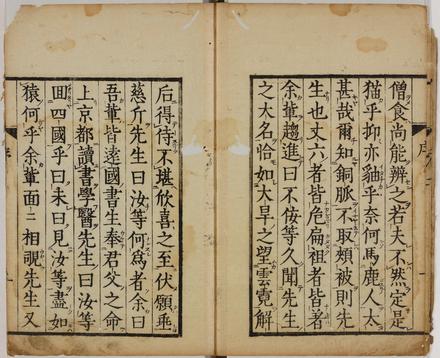 僧食尚能辨之若夫不然定是
猫乎抑亦貓乎奈何馬鹿人太
甚哉爾知銅脈不取頬被則先
生也丈六者皆危扁袒者皆者
余輩趨進曰不佞等久聞先生
之大名恰如大旱之望雲霓解
后得待不堪欣喜之至伏願垂
慈斤先生曰汝等何為者余曰
吾輩皆遠國書生奉君父之命
上京都讀書學醫先生曰汝等
囬四國乎曰未曰見汝等盡如
猿何乎余輩面二相視先生又